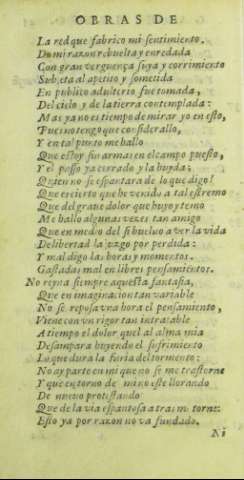 OBRAS DE
La red que fabrico mi sentimiento.
Do mi razon rebuelta y enredada
Con gran verguença suya y corrimiento
Subjeta al apetito y sometida
En publico adulterio fue tomada,
Del cielo y de la tierra contemplada:
Mas ya no es tiempo de mirar yo en esto,
Pues no tengo que considerallo,
Y en tal punto me hallo
Que estoy sin armas en el campo puesto,
Y el passo ya cerrado y la huyda:
Quien no se espantara de lo que digo!
Que es cierto que he venido a tal estremo
Que del graue dolor que huyo y temo
Me hallo algunas vezes tan amigo
Que en medio del si bueluo a ver la vida
De libertad la juzgo por perdida:
Y maldigo las horas y momentos.
Gastadas mal en libres pensamientos.
No reyna siempre aquesta fantasia,
Que en imaginacion tan variable
No se reposa vna hora el pensamiento,
Viene con vn rigor tan intratable
A tiempo el dolor que al alma mia
Desampara huyendo el sufrimiento
Lo que dura la furia del tormento:
No ay parte en mi que no se me trastorne
Y que en torno de mi no este llorando
De nueuo protestando
Que de la via espantosa atras me torne:
Esto ya por razon no va fundado.
Ni